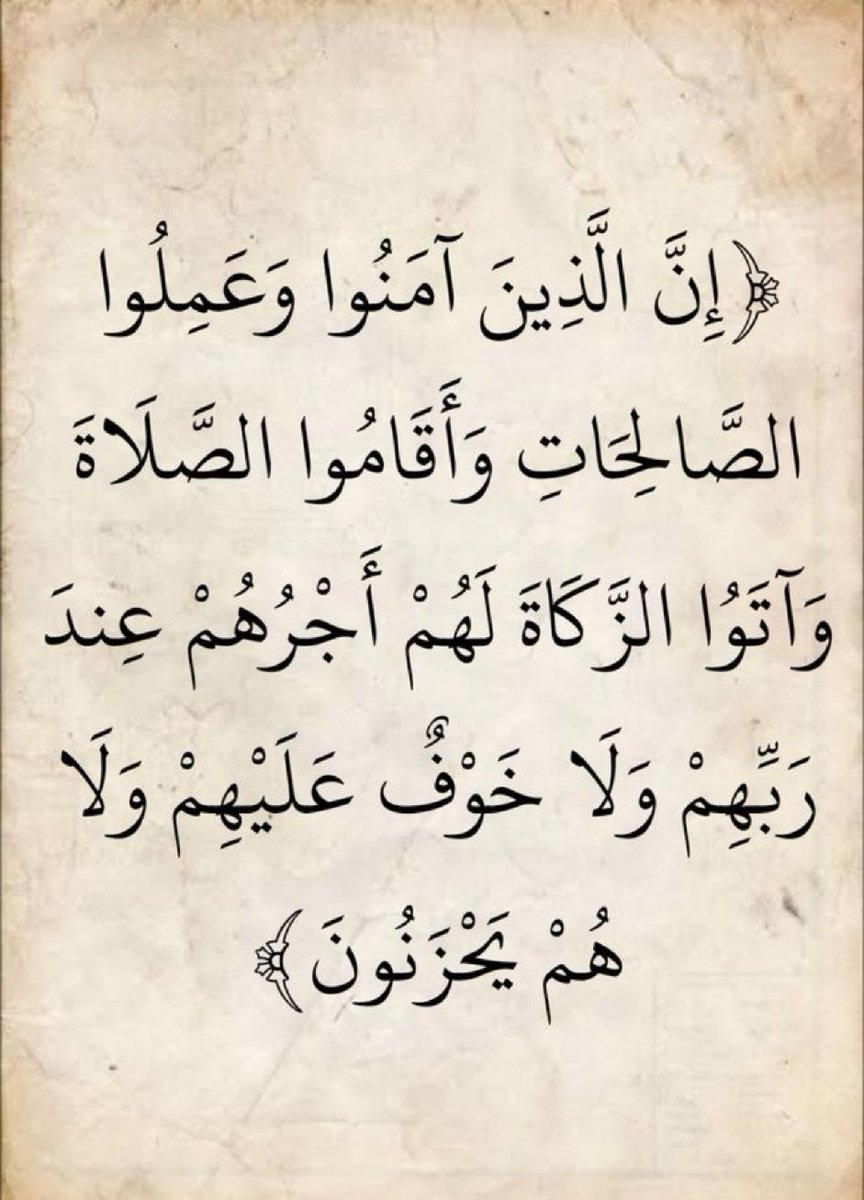 ﴿إِنَّ الَّذِينَ آمَنُوا وَعَمِلُوا
الصَّالِحَاتِ وَأَقَامُوا الصَّلَاةَ
وَآتَوُا الزَّكَاةَ لَهُمْ أَجْرُهُمْ عِندَ
رَبِّهِمْ وَلَا خَوْفٌ عَلَيْهِمْ وَلَا
هُمْ يَحْزَنُونَ﴾